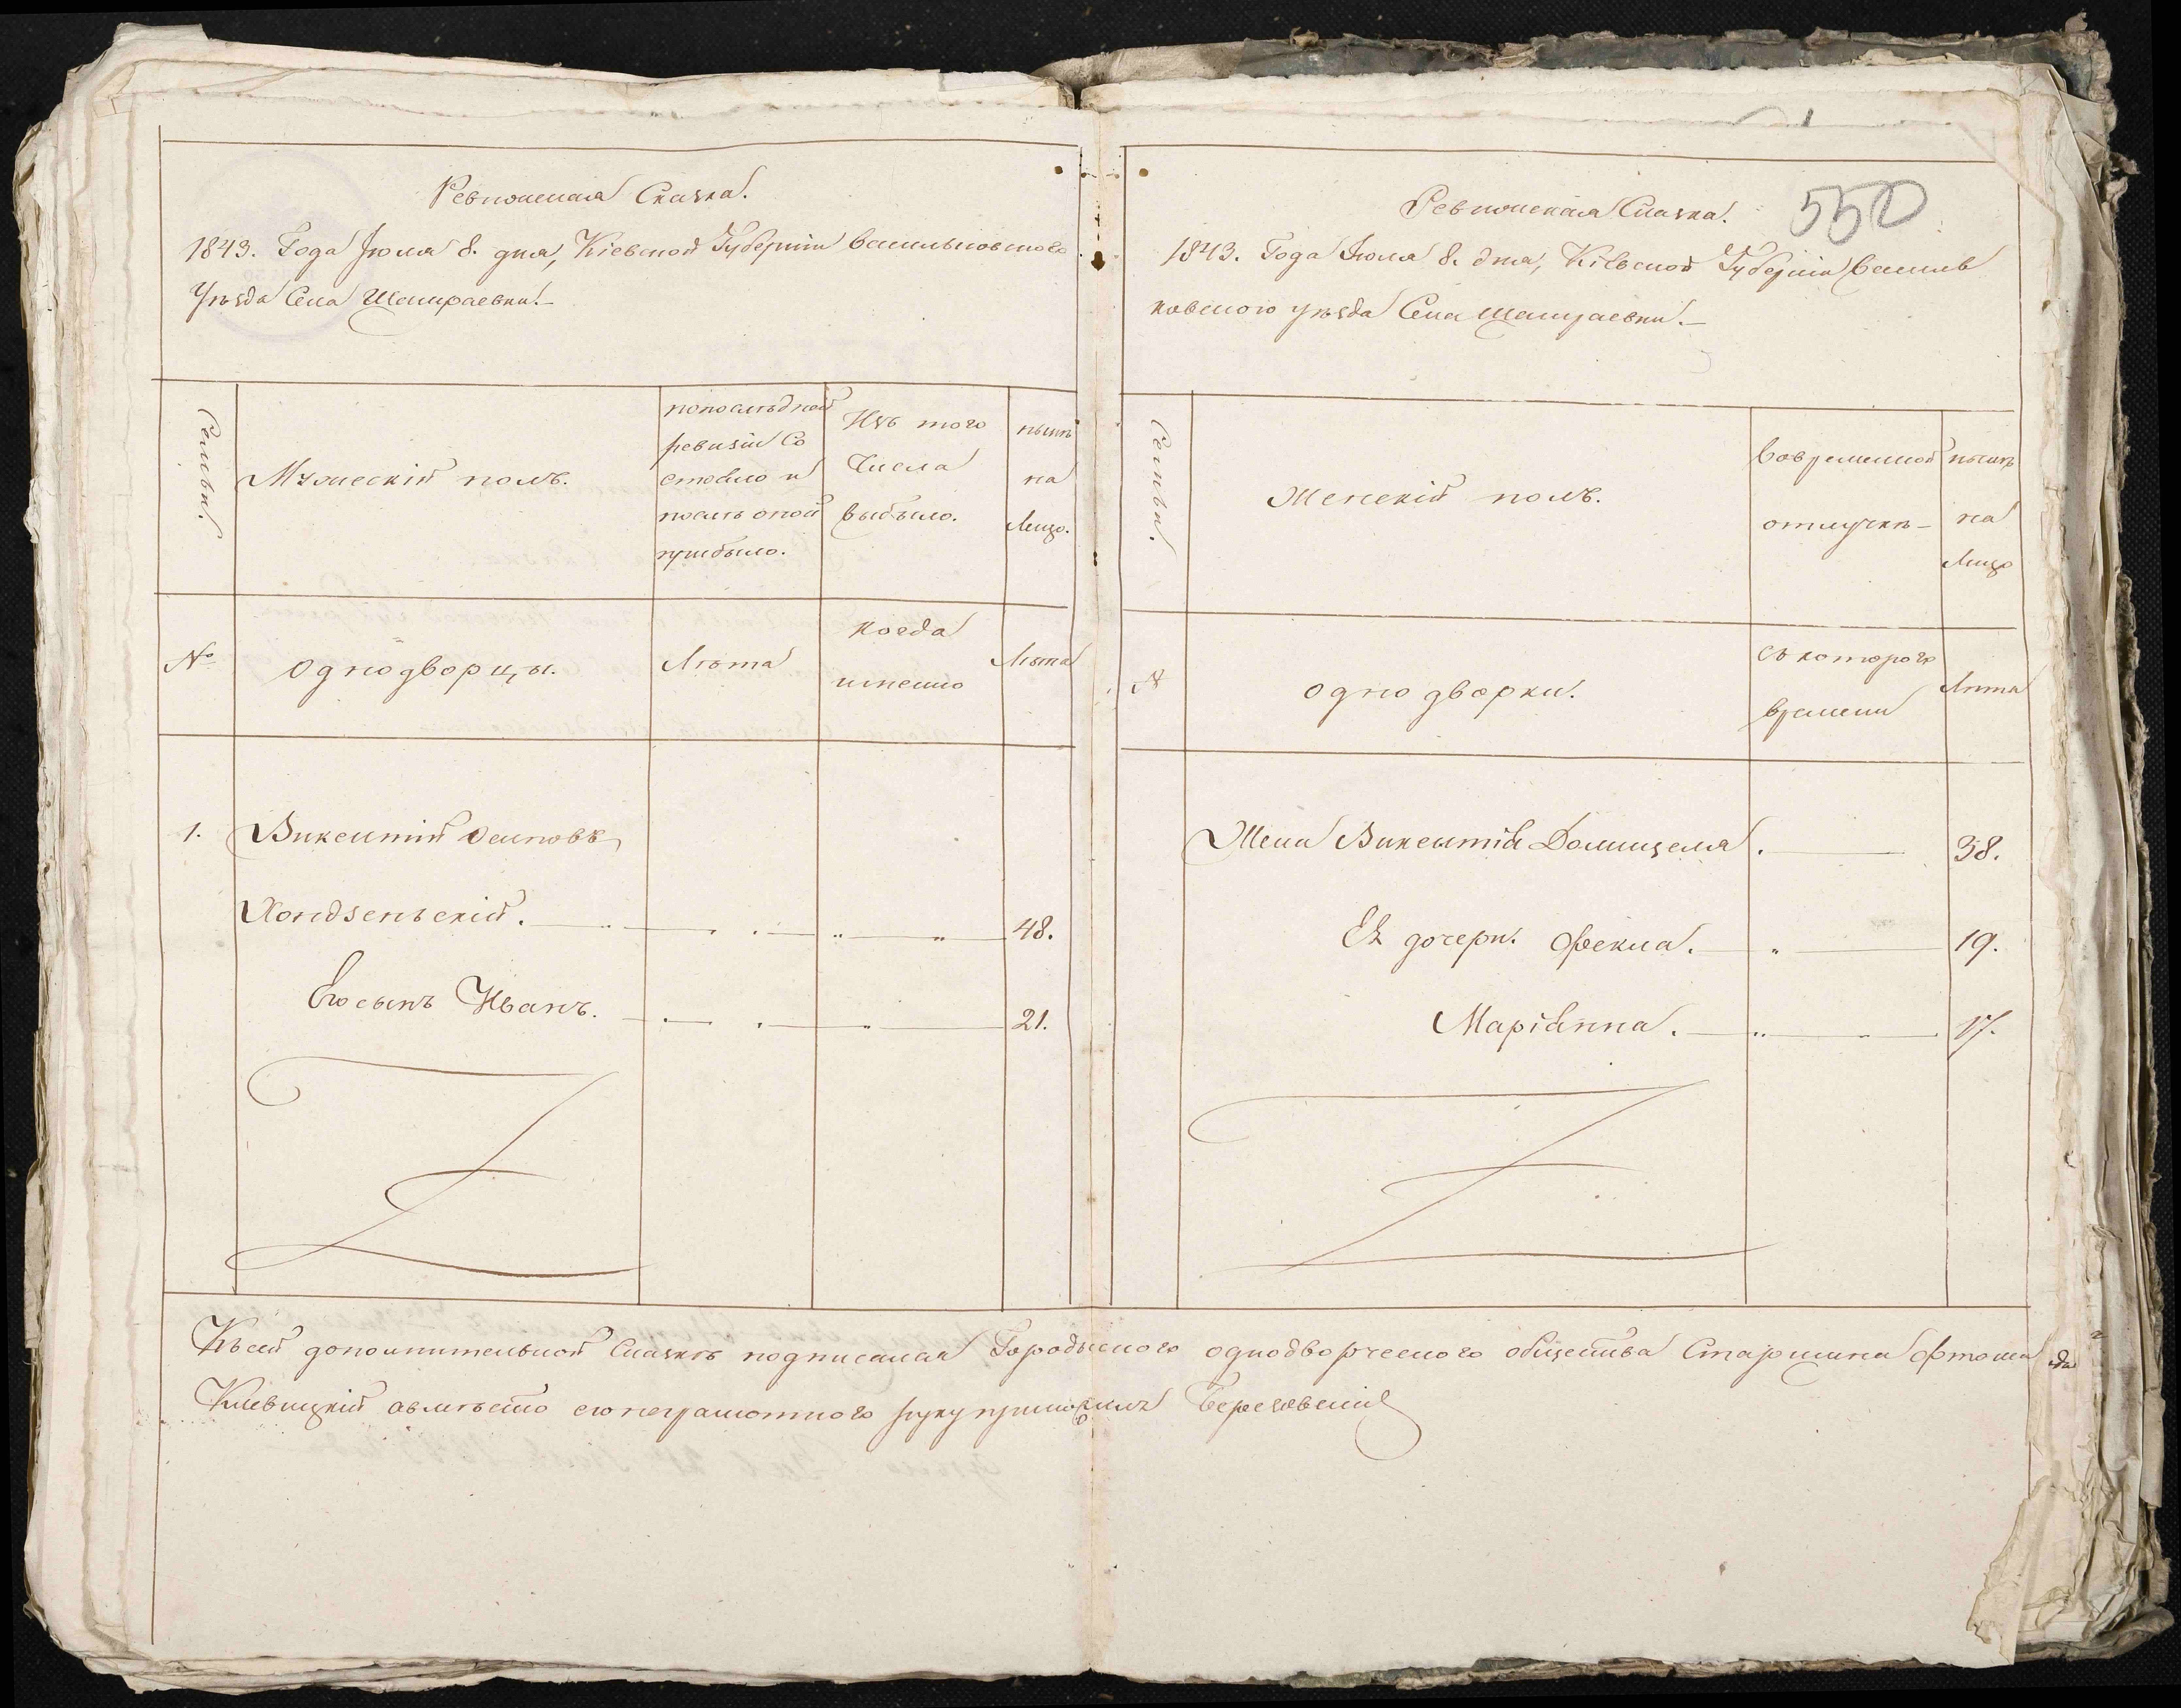 Ревизская Сказка.
1843. Года Июля 8. дня, Кіевской Губерніи Васильковского
Уезда Села Шамраевки.
Семьи.
Мужескій полъ.
попоследней
ревизіи Со
стояло и
после оной
прибыло.
Изъ того
Числа
выбыло.
ныне
на
Лицо.
№
однодворцы.
Лета
когда
именно
Лета
1. Викентій Осиповъ
Хондзеньскій. 48.
Его сынъ Иванъ. 21.
550
Ревизская Сказка.
1843. Года Июля 8. дня, Кіевской Губерніи Василь
ковского уезда Села Шамраевки.
Семьи.
Женскій полъ.
Вовременной
отлучке
ныне
на
Лицо
№
однодворки.
съ которого
времени
Лета
Жена Викентія Домицеля. 38.
Ея дочери. Фекла. 19.
Маріянна. 17.
Ксей дополнительной Сказке подписался Городыского однодворческого общества Старшина
авместо его неграмотного руку приложилъ